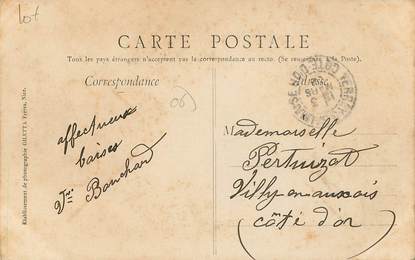 lot
CARTE POSTALE
Tous les pays étrangers n'acceptent pas la correspondance au recto. (Se renseigner à la Poste).
Correspondance
Adresse
06
affectueux
baisers
Bouchard
Mademoiselle
Pertuizot
Villy en auxois
(côté d'or)
Etablissement de photographie GILETTA Frères, Nice.